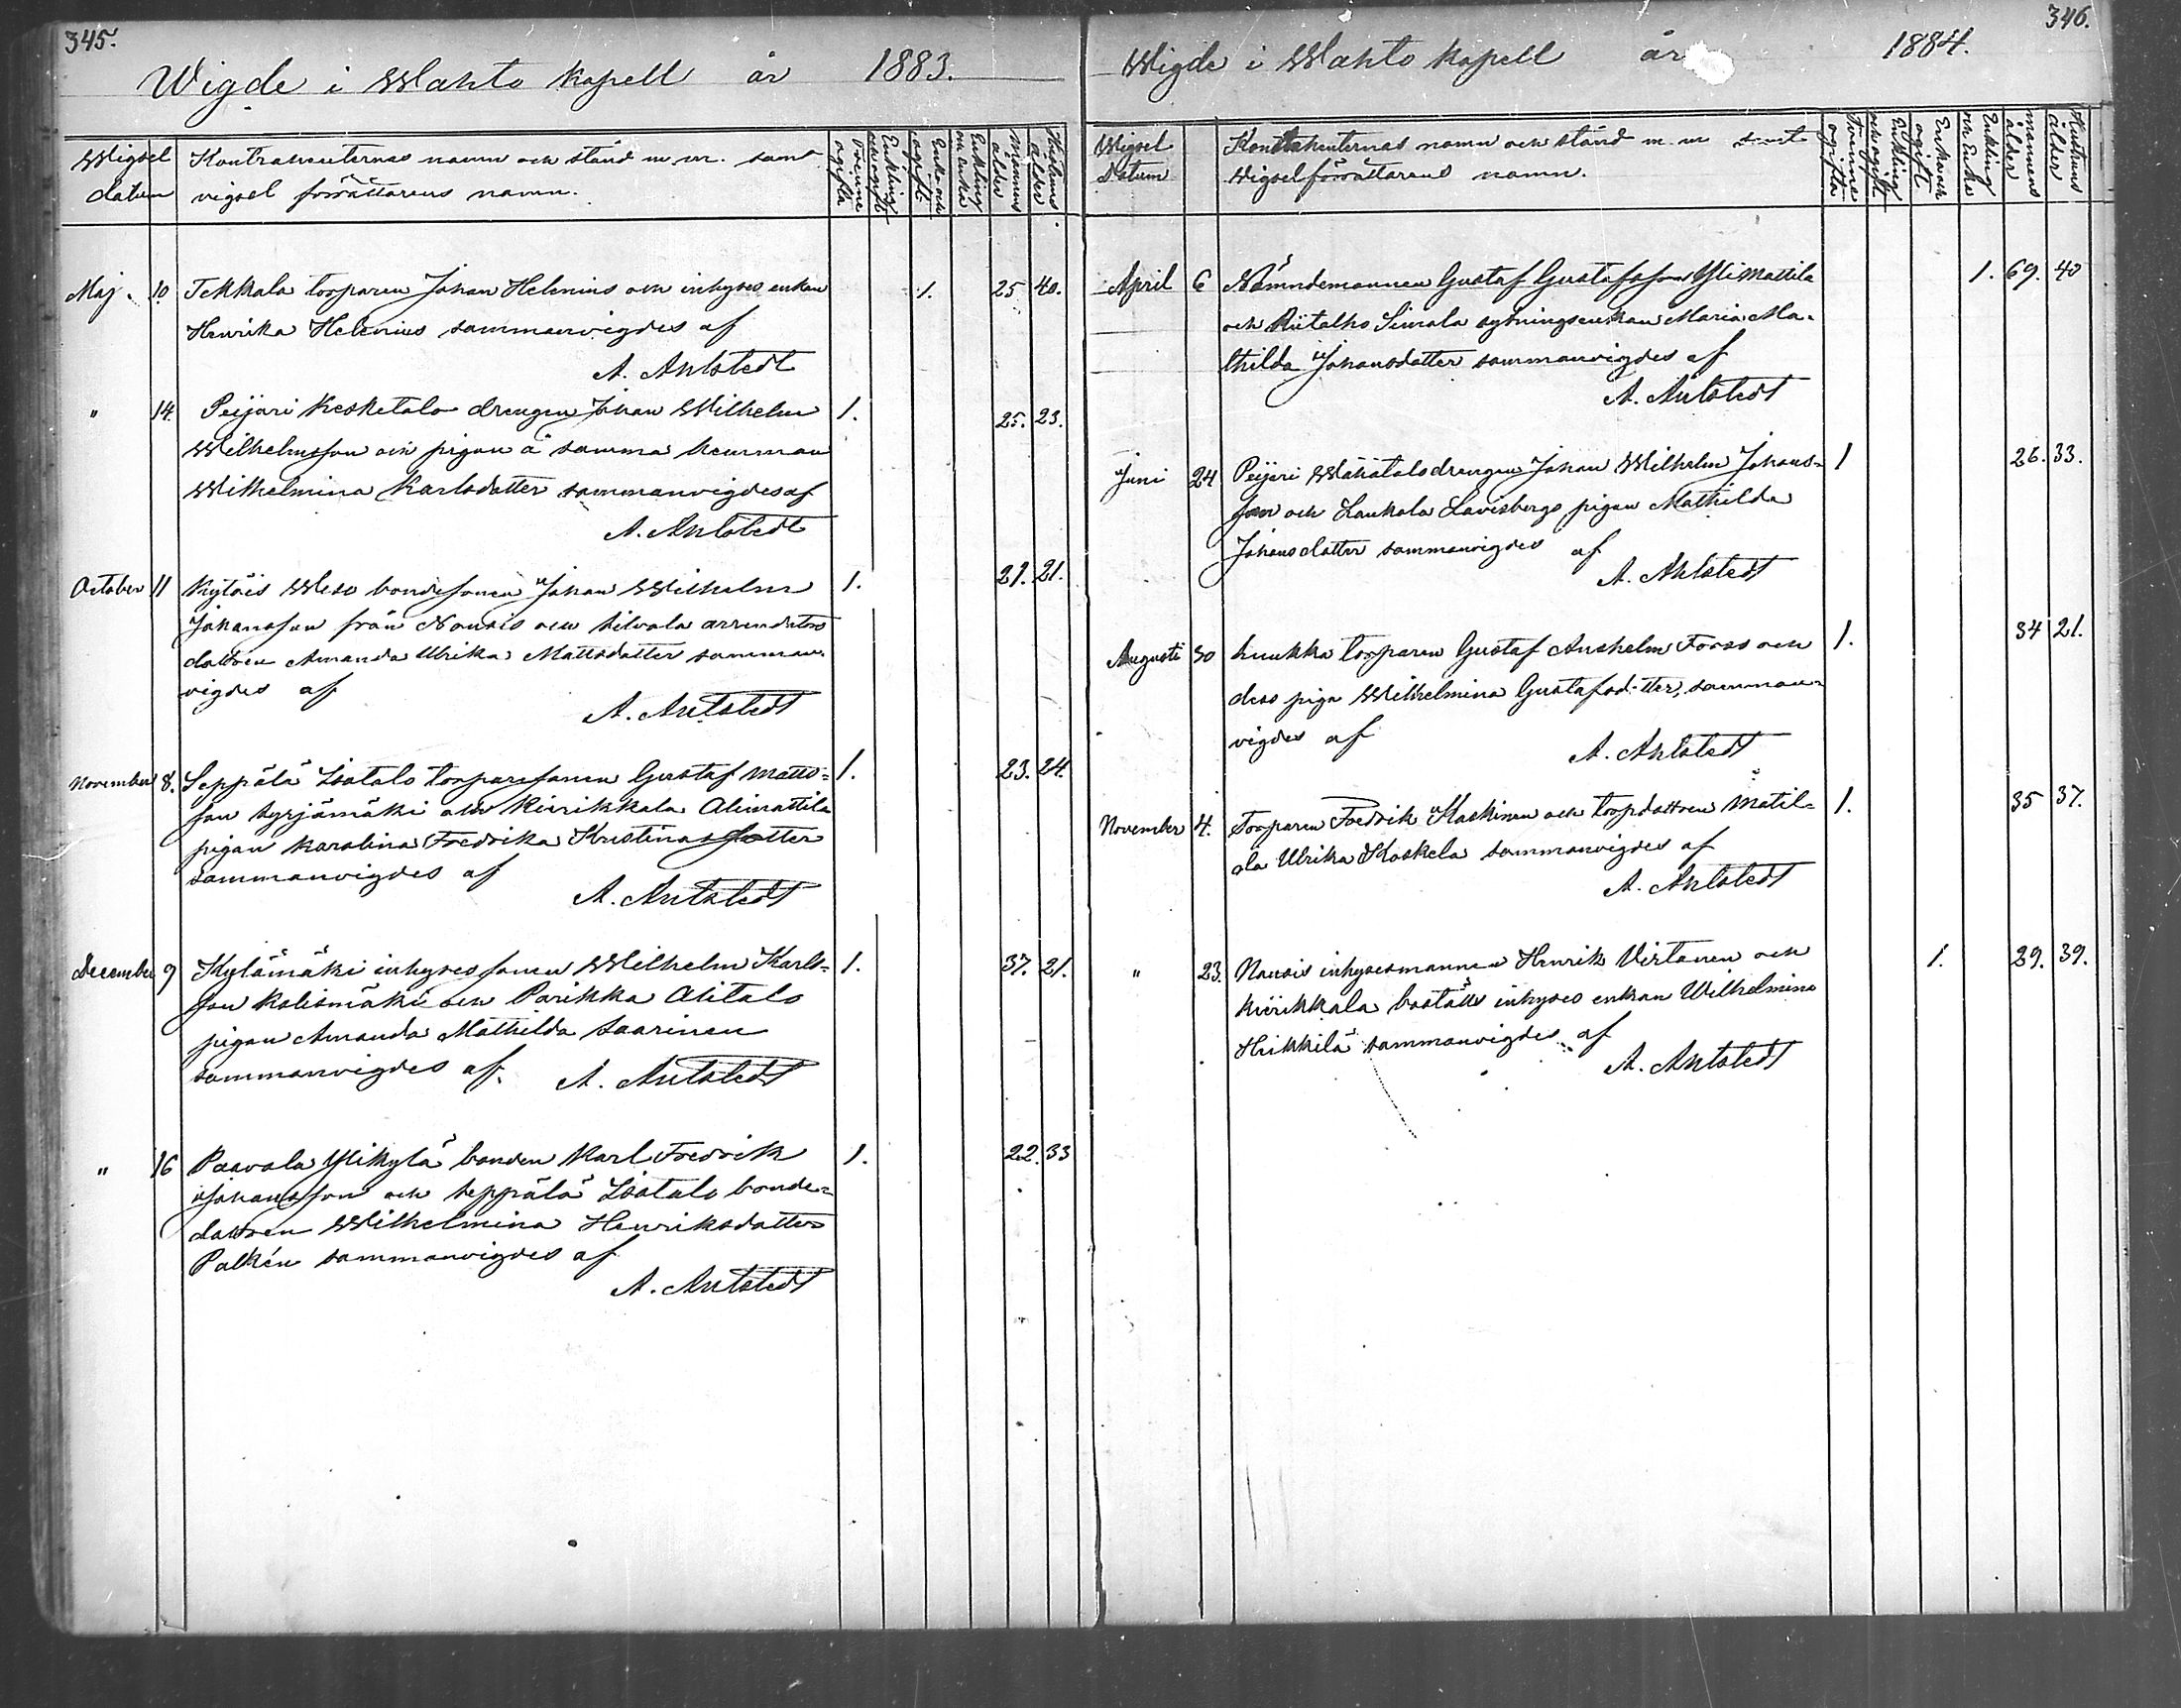 345.
Wigde i Wahto Kapell år 1883.
Wigsel datum
Kontrahenternas namn och stånd m. m. samt
vigsel förrättarens namn.
Tvenne ogifta
Enkling och ogift
Enka och ogift
Enkling och enka
Mannens ålder
Hustruns ålder
Maj. 10 Tekkala torparen Johan Helenius och inhyses enkan 1. 25 40.
Henrika Helenius sammanvigdes af
A. Ahlstedt
" 14. Peijari Keskitalo drengen Johan Wilhelm 1. 25. 23.
Wilhelmsson och pigan å samma hemman
Wilhelmina Karlsdotter sammanvigdes af
A. Ahlstedt
October 11 Kytöis Weso bondesonen Johan Wilhelm 1. 21. 21.
Johansson från Nousis och arrendators
dottren Amanda Ulrika Mattsdotter samman-
vigdes af
A. Ahlstedt
November 8. Seppälä Isotalo torparesonen Gustaf Matts- 1. 23. 24.
son Syrjämäki och Kierikkala Alimattila
pigan Karolina Fredrika Kristinasdotter
sammanvigdes af
A. Ahlstedt
December 9 Kylämäki inhyses sonen Wilhelm Karls- 1. 37. 21.
son Kalismäki och Parikka Alitalo
pigan Amanda Mathilda Saarinen
sammanvigdes af. A. Ahlstedt
" 16 Paavola Ylikylä bonden Karl Fredrik 1. 22. 33
Johansson och Seppälä Isotalo bonde-
dottren Wilhelmina Henriksdotter
Palkén sammanvigdes af
A. Ahlstedt
346.
Wigde i Wahto Kapell år 1884.
Wigsel Datum
Kontrahenternas namn och stånd m. m samt
Wigselförrättarens namn.
Tvenne ogifta
Enkling och ogift
Enka och ogift
Enkling och Enka
mannens ålder
Hustruns ålder
April 6 Nämndemannen Gustaf Gustafsson Yli Mattila 1. 69. 40
och Riitalho Simala sytningsenkan Maria Ma-
thilda Johansdotter sammanvigdes af
A. Ahlstedt
Juni 24 Peijari Wähätalo drengen Johan Wilhelm Johans- 1 26. 33.
son och Laukola Lavisbergs pigan Mathilda
Johansdotter sammanvigdes af
A. Ahlstedt
Augusti 30 Kuukka torparen Gustaf Anshelm Forss och 1. 34 21.
dess piga Wilhelmina Gustafsd:tter, samman-
vigdes af
A. Ahlstedt
November 4. Torparen Fredrik Maskinen och torpdottren Matil- 1. 35 37.
da Ulrika Koskela sammanvigdes af
A. Ahlstedt
" 23. Nousis inhysesmannen Henrik Virtanen och 1. 29. 39.
Kierikkala inhyses enkan Wilhelmina
Heikkilä sammanvigdes af
A. Ahlstedt